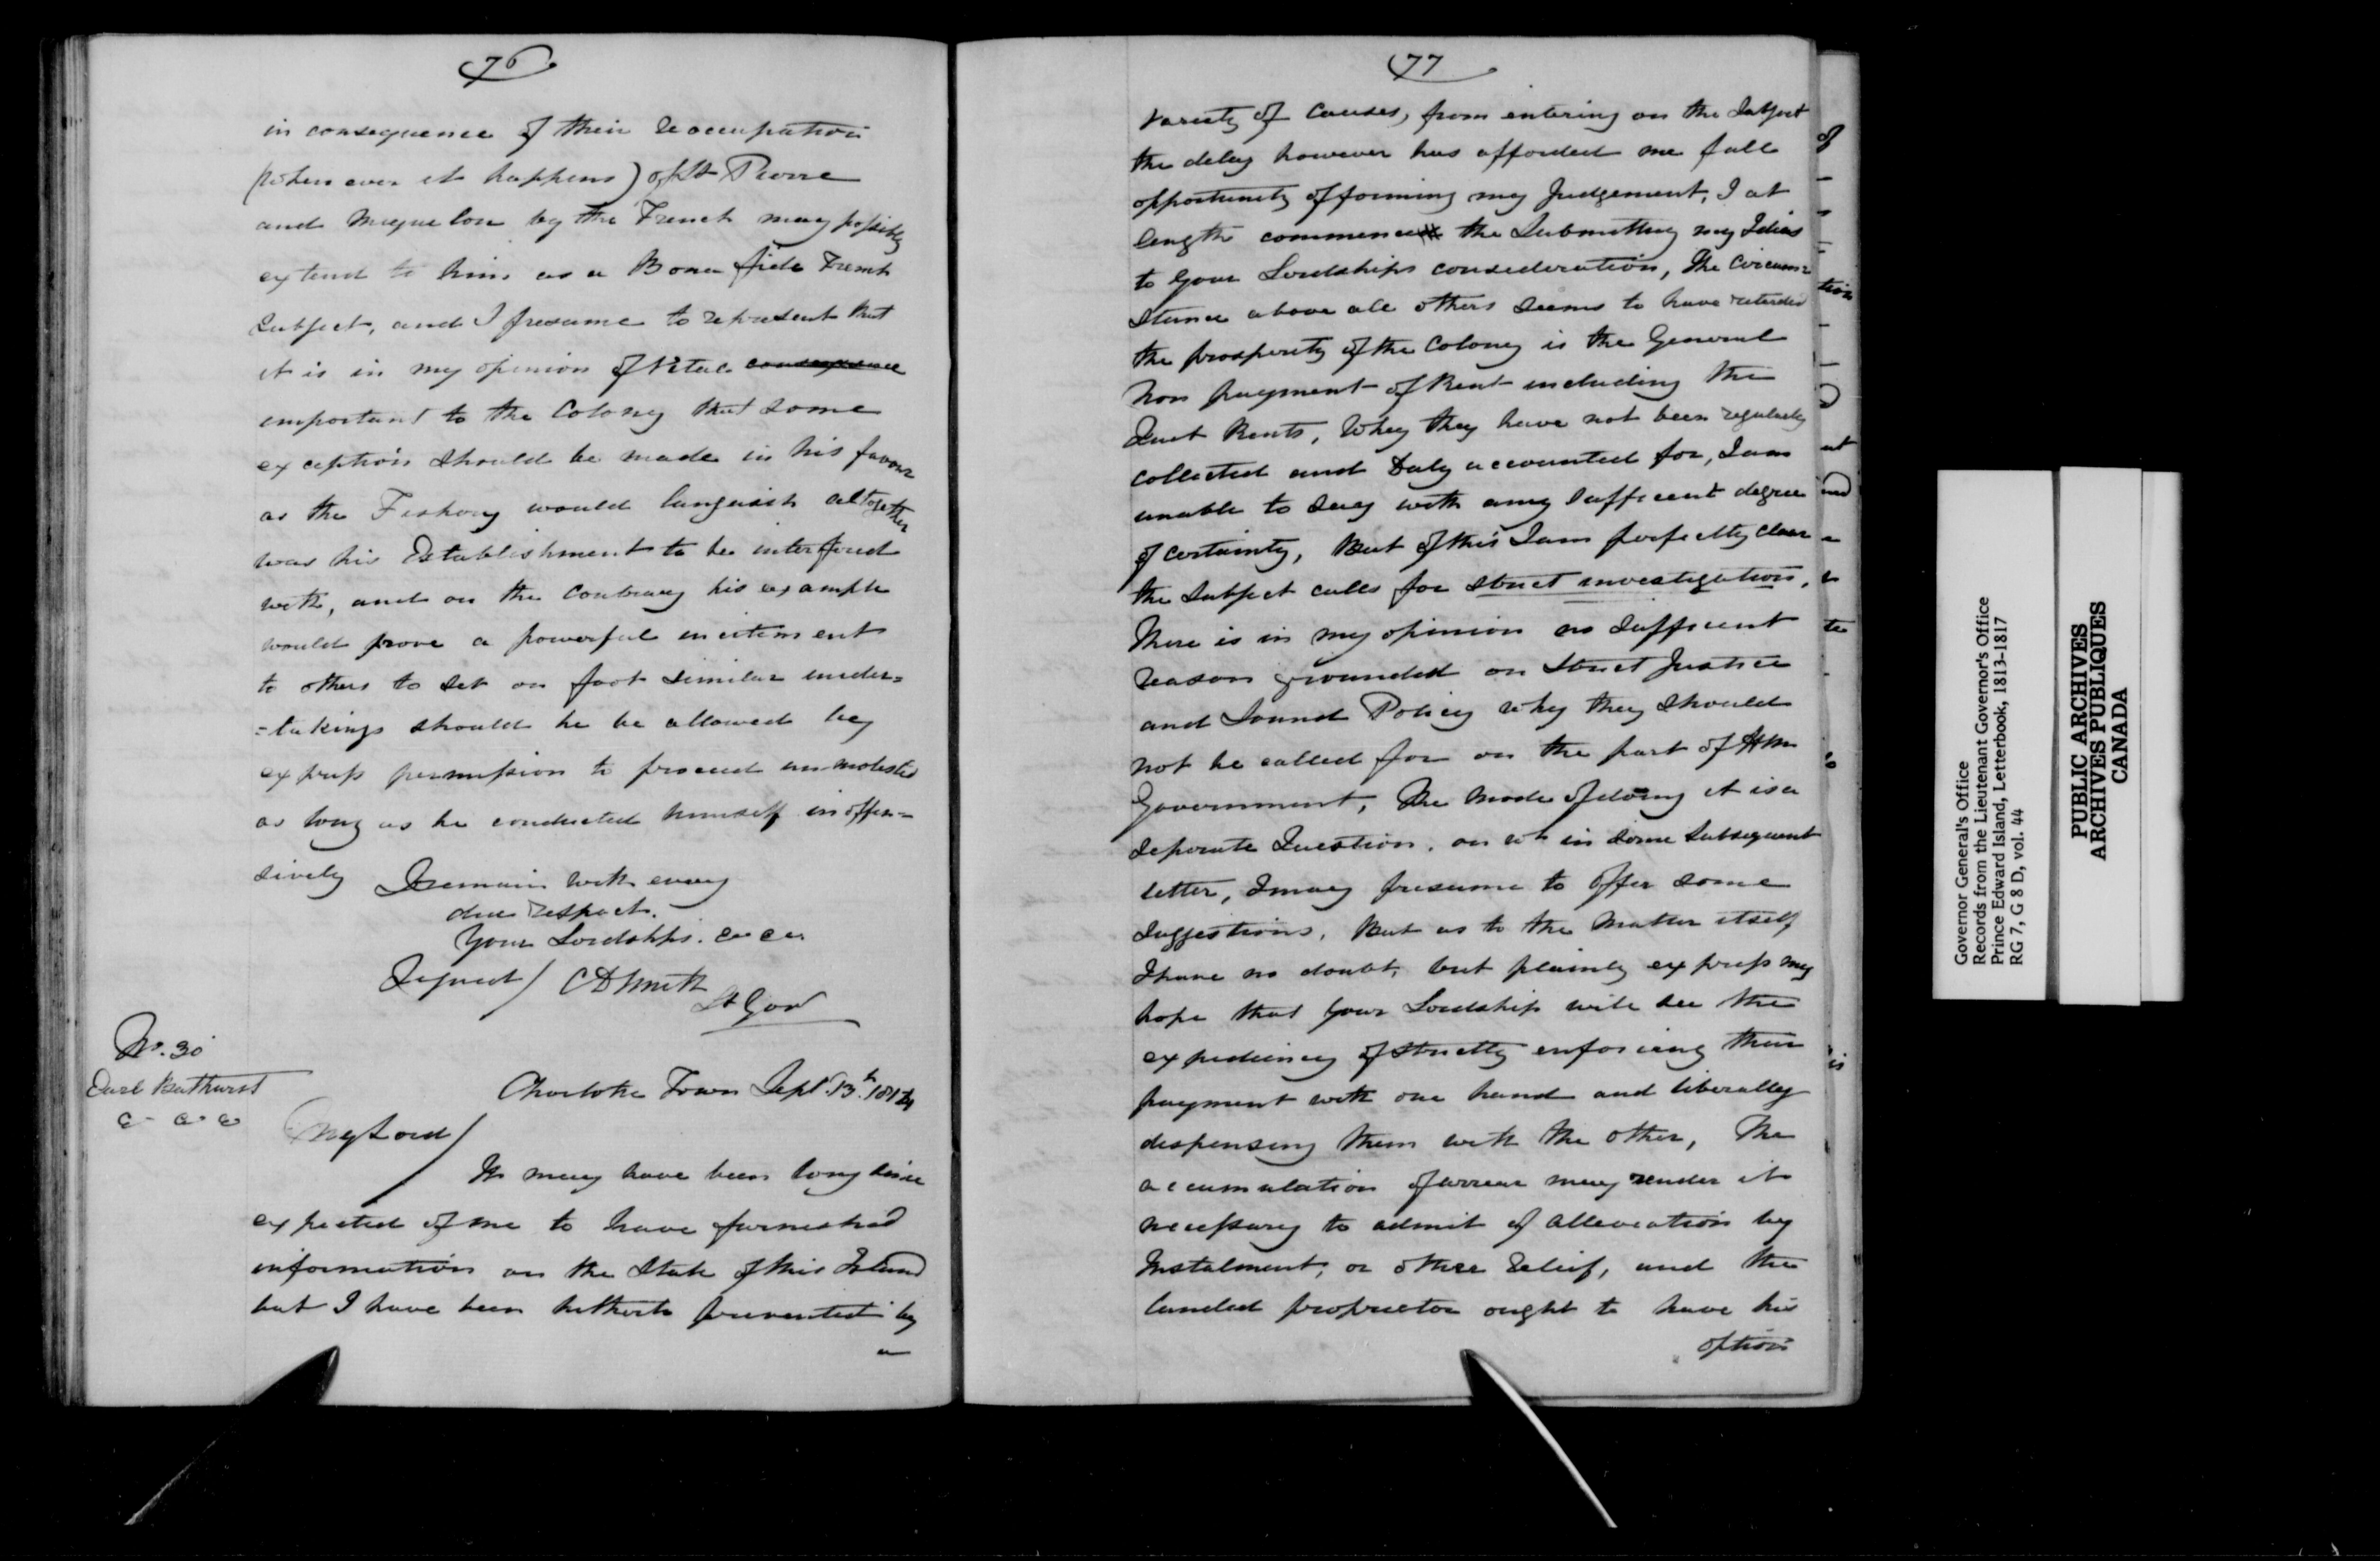 76
in consequence of their reoccupation
(when ever it happens) of St Pierre
and Miquelon by the French may possibly
extend to him as a Bona fide French
Subject, and I presume to represent that
it is in my opinion of Vital consequence
important to the Colony that some
exception should be made in his favour
as the Fishery would languish altogether
was his Establishment to be interfered
with, and on the Contrary his example
would prove a powerful incitement
to others to set on foot similar under=
=takings should he be allowed by
express permission to proceed unmolested
as long as he conducted himself inoffen=
sively
I remain with every
due respect.
Your Lordships. &c &c.
Signed / C D Smith
Lt Gov
No. 30
Earl Bathurst
&c &c &c
Charlotte Town Sept. 13th. 1814
My Lord /
It may have been long since
expected of me to have furnished
information on the State of this Island
but I have been hitherto prevented by
a
77
variety of Causes, from entering on the Subject
the delay however has afforded me full
opportunity of forming my Judgement, I at
length commence the Submitting my Ideas
to your Lordships consideration, The Circum=
stance above all others seems to have retarded
the prosperity of the Colony is the General
non payment of Rent including the
Quit Rents, Why they have not been regularly
collected and Duly accounted for, I am
unable to say with any sufficient degree
of certainty, But of this I am perfectly clear
the Subject calls for strict investigation,
There is in my opinion no sufficient
reason grounded on Strict Justice
and Sound Policy why they should
not be called for on the part of HM
Government, The Mode of doing it is a
Seperate Question, on wh in some Subsequent
letter, I may presume to offer some
Suggestions, But as to the Matter itself
I have no doubt, but plainly express my
hope that your Lordship will see the
expediency of strictly enforcing their
payment with one hand and liberally
dispensing them with the other, The
accumulation of arrear may render it
necessary to admit of alleviation by
Instalment, or other relief, and the
landed proprietor ought to have his
option
Governor General's Office
Records from the Lieutenant Governor's Office
Prince Edward Island, Letterbook, 1813-1817
RG 7, G 8 D, vol. 44
PUBLIC ARCHIVES
ARCHIVES PUBLIQUES
CANADA